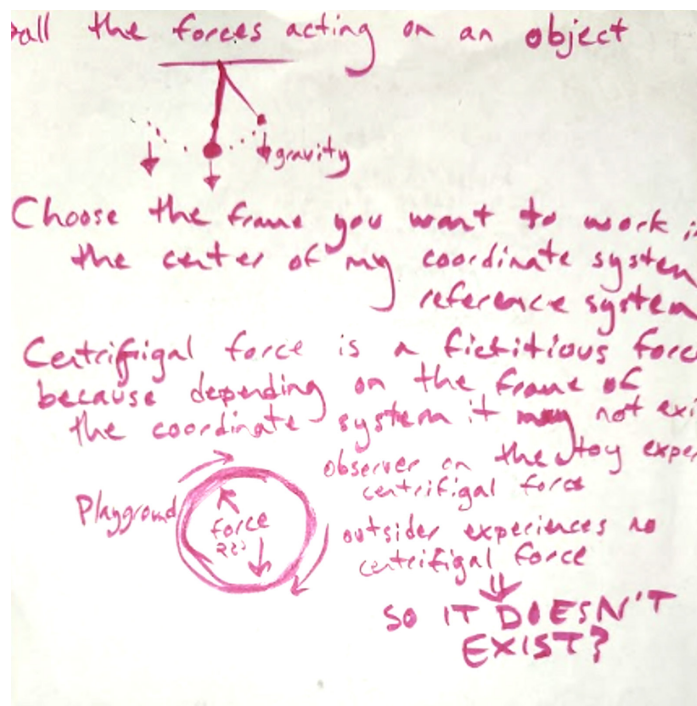 all the forces acting on an object
gravity
Choose the frame you want to work i
the center of my coordinate system
reference system
Centrifigal force is a fictitious forc
because depending on the frame of
the coordinate system it may not exi
observer on the toy exper
centrifigal force
Playground
force
outsider experiences no
centrifigal force
SO IT DOESN'T
EXIST?